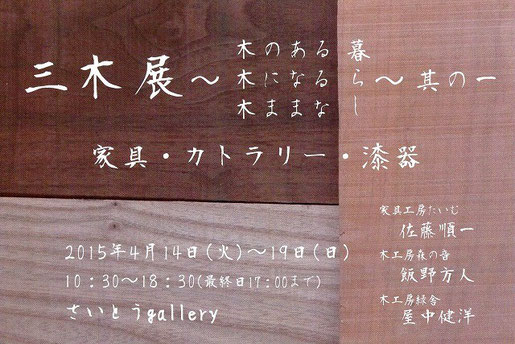 三木展～木のある暮らし～其の一
木になる
木ままな
家具・カトラリー・漆器
2015年4月14日(火)～19日(日)
10：30～18：30(最終日17:00まで)
さいとうgallery
家具工房たいむ
佐藤順一
木工房森の音
飯野方人
木工房緑舎
屋中健洋